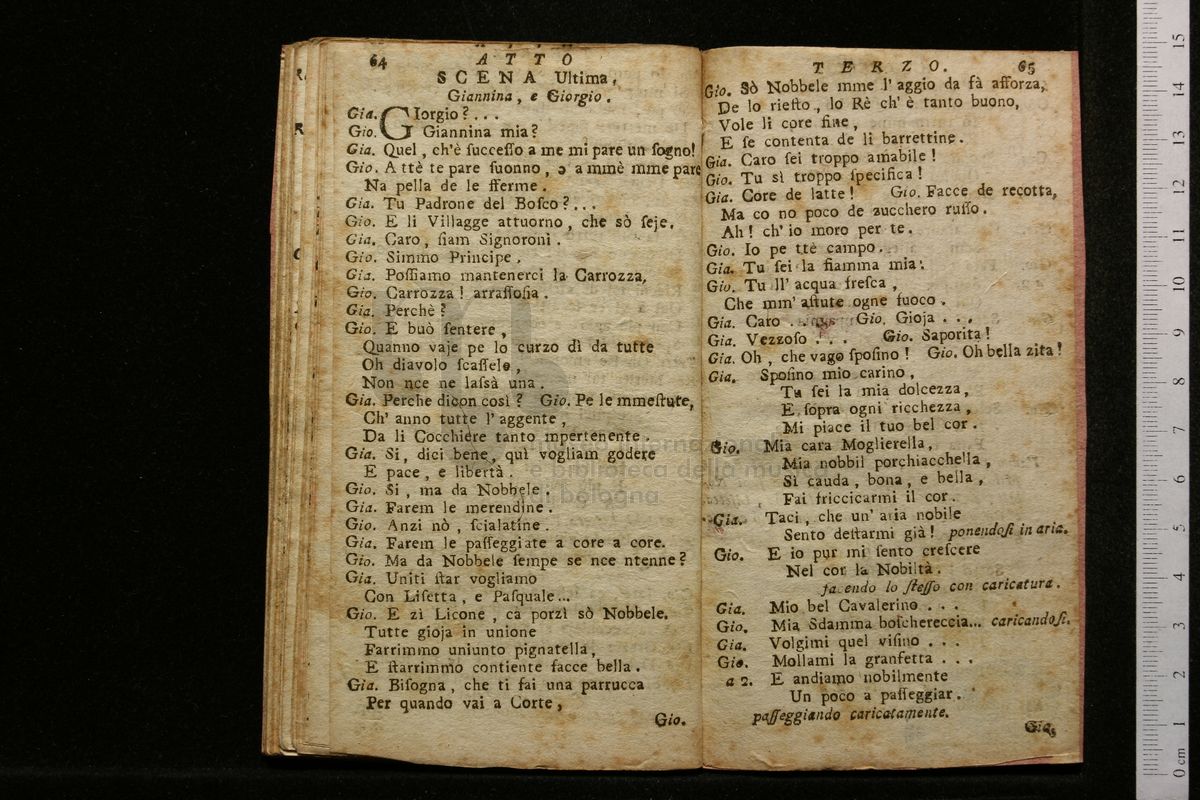 64
ATTO
SCENA Ultima.
Giannina, e Giorgio.
Gia. GIorgio?...
Gio. Giannina mia?
Gia. Quel, ch'è ſucceſſo a me mi pare un ſogno!
Gio. A ttè te pare ſuonno, ɔ a mmè mme pare
Na pella de le ſferme.
Gia. Tu Padrone del Boſco?...
Gio. E li Villagge attuorno, che sò ſeje.
Gia. Caro, ſiam Signoroni.
Gio. Simmo Principe.
Gia. Poſſiamo mantenerci la Carrozza.
Gio. Carrozza! arraſſoſia.
Gia. Perchè?
Gio. E buò ſentere,
Quanno vaje pe lo curzo dì da tutte
Oh diavolo ſcaſſele,
Non nce ne laſsà una.
Gia. Perche dicon così? Gio. Pe le mmeſtute,
Ch' anno tutte l'aggente,
Da li Cocchiere tanto mpertenente.
Gia. Si, dici bene, quì vogliam godere
E pace, e libertà.
Gio. Si, ma da Nobbele.
Gia. Farem le merendine.
Gio. Anzi nò, ſcialatine.
Gia. Farem le paſſeggiate a core a core.
Gio. Ma da Nobbele ſempe se nce ntenne?
Gia. Uniti ſtar vogliamo
Con Liſetta, e Paſquale...
Gio. E zì Licone, ca porzì sò Nobbele.
Tutte gioja in unione
Farrimmo uniunto pignatella,
E ſtarrimmo contiente facce bella.
Gia. Biſogna, che ti fai una parrucca
Per quando vai a Corte,
Gio.
TERZO. 65
Gio. Sò Nobbele mme l'aggio da fà afforza,
De lo rieſto, lo Rè ch'è tanto buono,
Vole li core fine,
E ſe contenta de li barrettine.
Gia. Caro ſei troppo amabile!
Gio. Tu sì troppo ſpecifica!
Gia. Core de latte! Gio. Facce de recotta,
Ma co no poco de zucchero ruſſo.
Ah! ch'io moro per te.
Gio. Io pe ttè campo.
Gia. Tu ſei la fiamma mia.
Gio. Tu ll' acqua freſca,
Che mm' aſtute ogne fuoco.
Gia. Caro ... Gio. Gioja ...
Gia. Vezzoſo ... Gio. Saporita!
Gia. Oh, che vago ſpoſino! Gio. Oh bella zita!
Gia. Spoſino mio carino,
Tu ſei la mia dolcezza,
E ſopra ogni ricchezza,
Mi piace il tuo bel cor.
Gio. Mia cara Moglierella,
Mia nobbil porchiacchella,
Sì cauda, bona, e bella,
Fai friccicarmi il cor.
Gia. Taci, che un' aria nobile
Sento deſtarmi già! ponendoſi in aria.
Gio. E io pur mi ſento creſcere
Nel cor la Nobiltà.
facendo lo ſteſſo con caricatura.
Gia. Mio bel Cavalerino ...
Gio. Mia Sdamma boſchereccia... caricandoſi.
Gia. Volgimi quel viſino ...
Gio. Mollami la granfetta ...
a 2. E andiamo nobilmente
Un poco a paſſeggiar.
paſſeggiando caricatamente.
Gia.